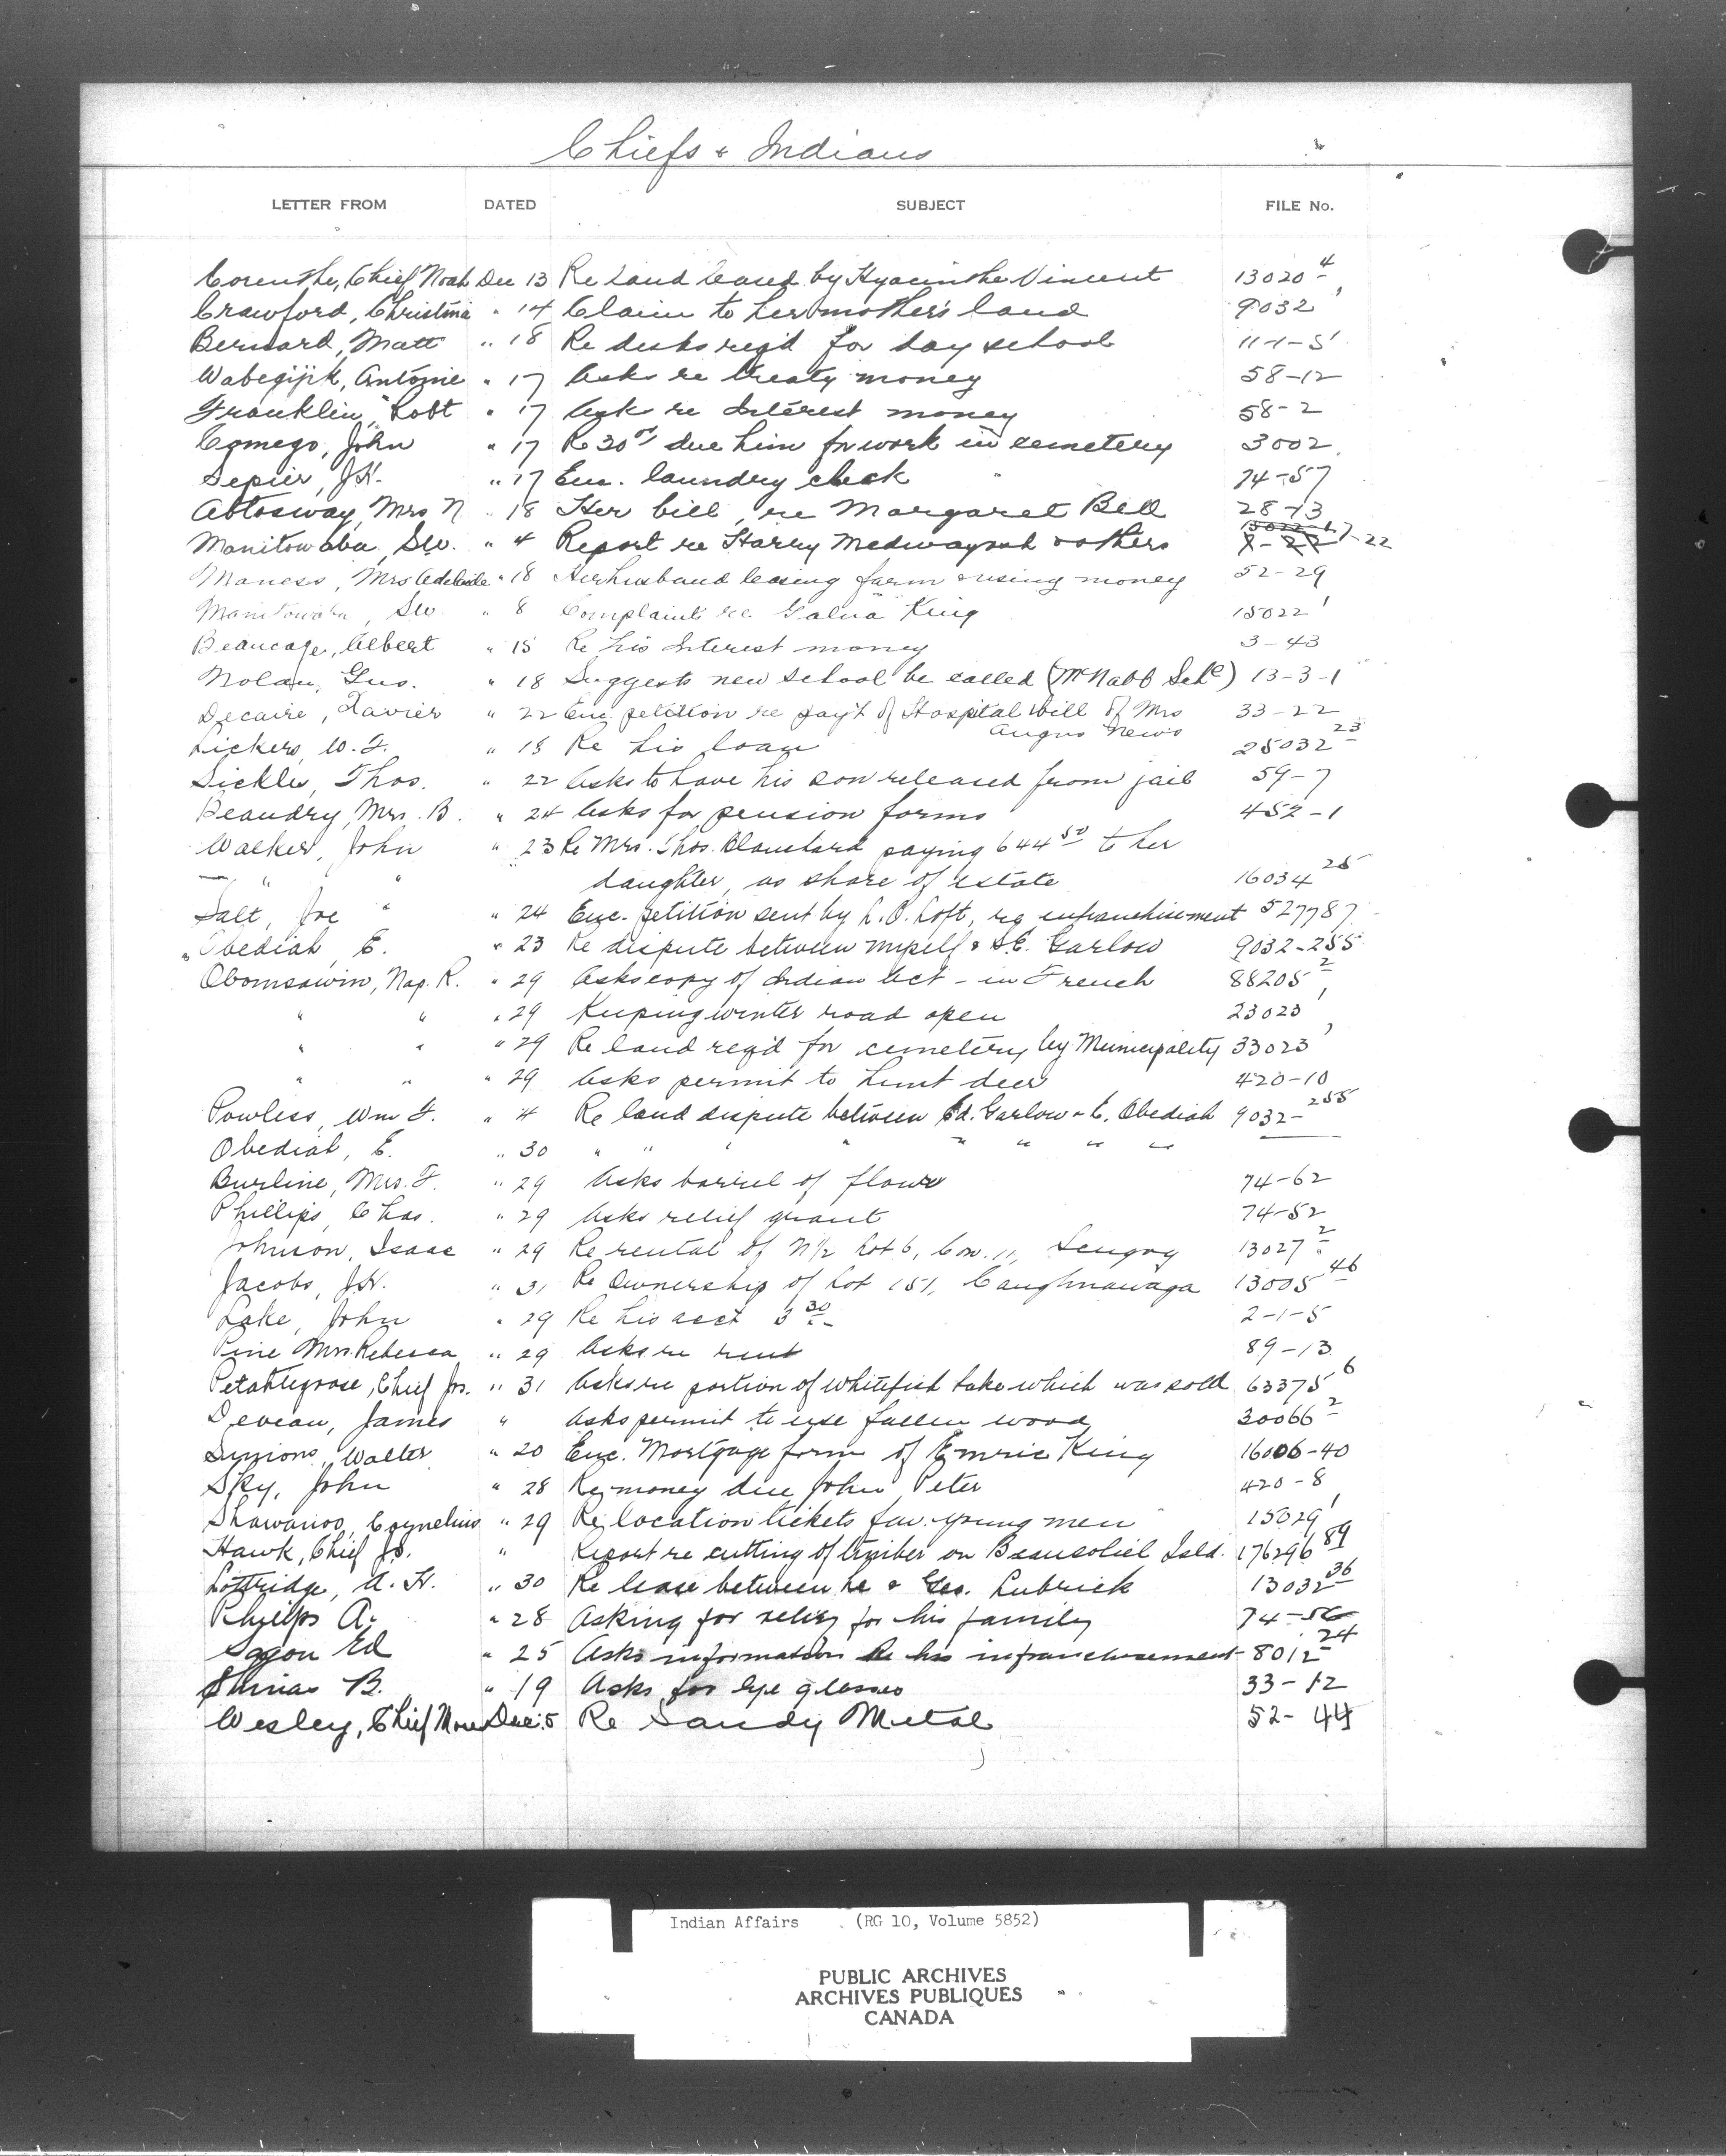 Chiefs & Indians
LETTER FROM DATED SUBJECT FILE No.
Corenthe, Chief Noah Dec 13 Re land leased by Hyacinthe Vincent 13020-4
Crawford, Christina " 14 Claim to her mother's land 9032 1
Bernard, Matt " 18 Re desks req'd for day school
Wabegijik, Antonie " 17 Asks re treaty money 58-12
Franklin, Robt " 17 Asks re Interest money 58-2
Comego, John " 17 Re 30 due him for work in cemetery 3002
Sepier, J.H. " 17 Enc. laundry check 74-57
Abtosway, Mrs N " 18 Her bill, re Margaret Bell 28-13
Manitowaba, SW. " 4 Report re Harry Medwayosh & others -22
Maness, Mrs Adelaide " 18 Her husband leasing farm & using money 52-29
Manitowaba, SW. " 8 Complaint re King 15022 1
Beaucage, Albert " 15 Re his Interest money 3-43
Nolan, Gus. " 18 Suggests new school be called (McNabb Schl) 13-3-1
Decaire, Xavier " 22 Enc petition re pay't of Hospital bill of Mrs 33-22
Angus News
Lickers, W.F. " 18 Re his loan 25032-23
Sickles, Thos. " 22 Asks to have his son released from jail 59-7
Beaudry, Mrs. B. " 24 Asks for pension forms 452-1
Walker, John " 23 Re Mrs. Thos. Blanchard paying 644 50 to her
" " daughter, as share of estate 16034 25
Salt, Joe " " 24 Enc. petition sent by L.O. Loft, rg enfranchisement 527787
" Obediah, E. " 23 Re dispute between myself & S.E. Garlow 9032-255
Obomsawin, Nap. R. " 29 Asks copy of Indian Act - in French 88205-2
" " " 29 Keeping winter road open 23023 1
" " " 29 Re land req'd for cemetery by Municipality 33023 1
" " " 29 Asks permit to hunt deer 420-10
Powless, Wm F. " 4 Re land dispute between Ed. Garlow & E. Obediah 9032-255
Obediah, E. " 30 " " " " " " " "
Burline, Mrs. F. " 29 Asks barrel of flour 74-62
Phillips, Chas. " 29 Asks relief grant 74-52
Johnson, Isaac " 29 Re rental of N½ Lot 6, Con. 11, Scugog 13027-2
Jacobs, J.H. " 31 Re Ownership of Lot 151, Caughnawaga 13005-46
Lake, John " 29 Re his acct 3 30 2-1-5
Pine Mrs. Rebecca " 29 Asks re rent 89-13
Petahtegoose, Chief Jos. " 31 Asks re portion of Whitefish Lake which was sold 63375 6
Deveau, James " Asks permit to use fallen wood 30066-2
Simons, Walter " 20 Enc. Mortgage form of Emric King 16006-40
Sky, John " 28 Re money due John Peter 420-8
Shawanoo, Cornelius " 29 Re location tickets for young men 15029 1
Hawk, Chief Js. " Report re cutting of timber on Beausoliel Isld. 176296 89
Lottridge, A. H. " 30 Re lease between he & Geo. Lubrick 13032-36
Phelps A. " 28 Asking for relief for his family 74-56
Ed " 25 Asks information Re his infranchisement 8012-24
B. " 19 Asks for Eye glasses 33-12
Wesley, Chief Mose Dec. 5 Re Sandy Metal 52-44
Indian Affairs (RG 10, Volume 5852)
PUBLIC ARCHIVES
ARCHIVES PUBLIQUES
CANADA